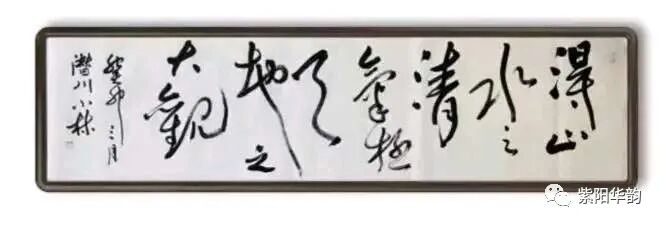 得山
水之
清
气极
天
地之
大观
癸卯三月
潜川小林
紫阳华韵